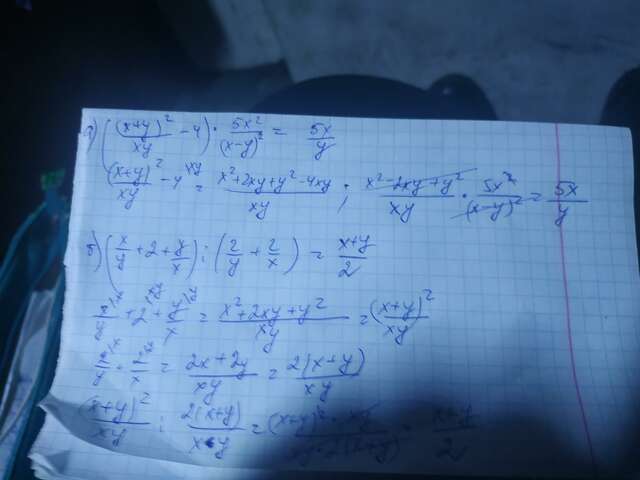 а) ((x+y)²/xy - 4) · 5x²/(x-y)² = 5x/y
(x+y)²/xy - 4 xy = x²+2xy+y²-4xy/xy ; x²-2xy+y²/xy · 5x²/(x-y)² = 5x/y
б) (x/y + 2 + y/x) : (2/y + 2/x) = x+y/2
x/y + 2 + y/x = x²+2xy+y²/xy = (x+y)²/xy
= 2x+2y/xy = 2(x+y)/xy
(x+y)²/xy : 2(x+y)/xy = (x+y)² · xy/xy · 2(x+y) = x+y/2